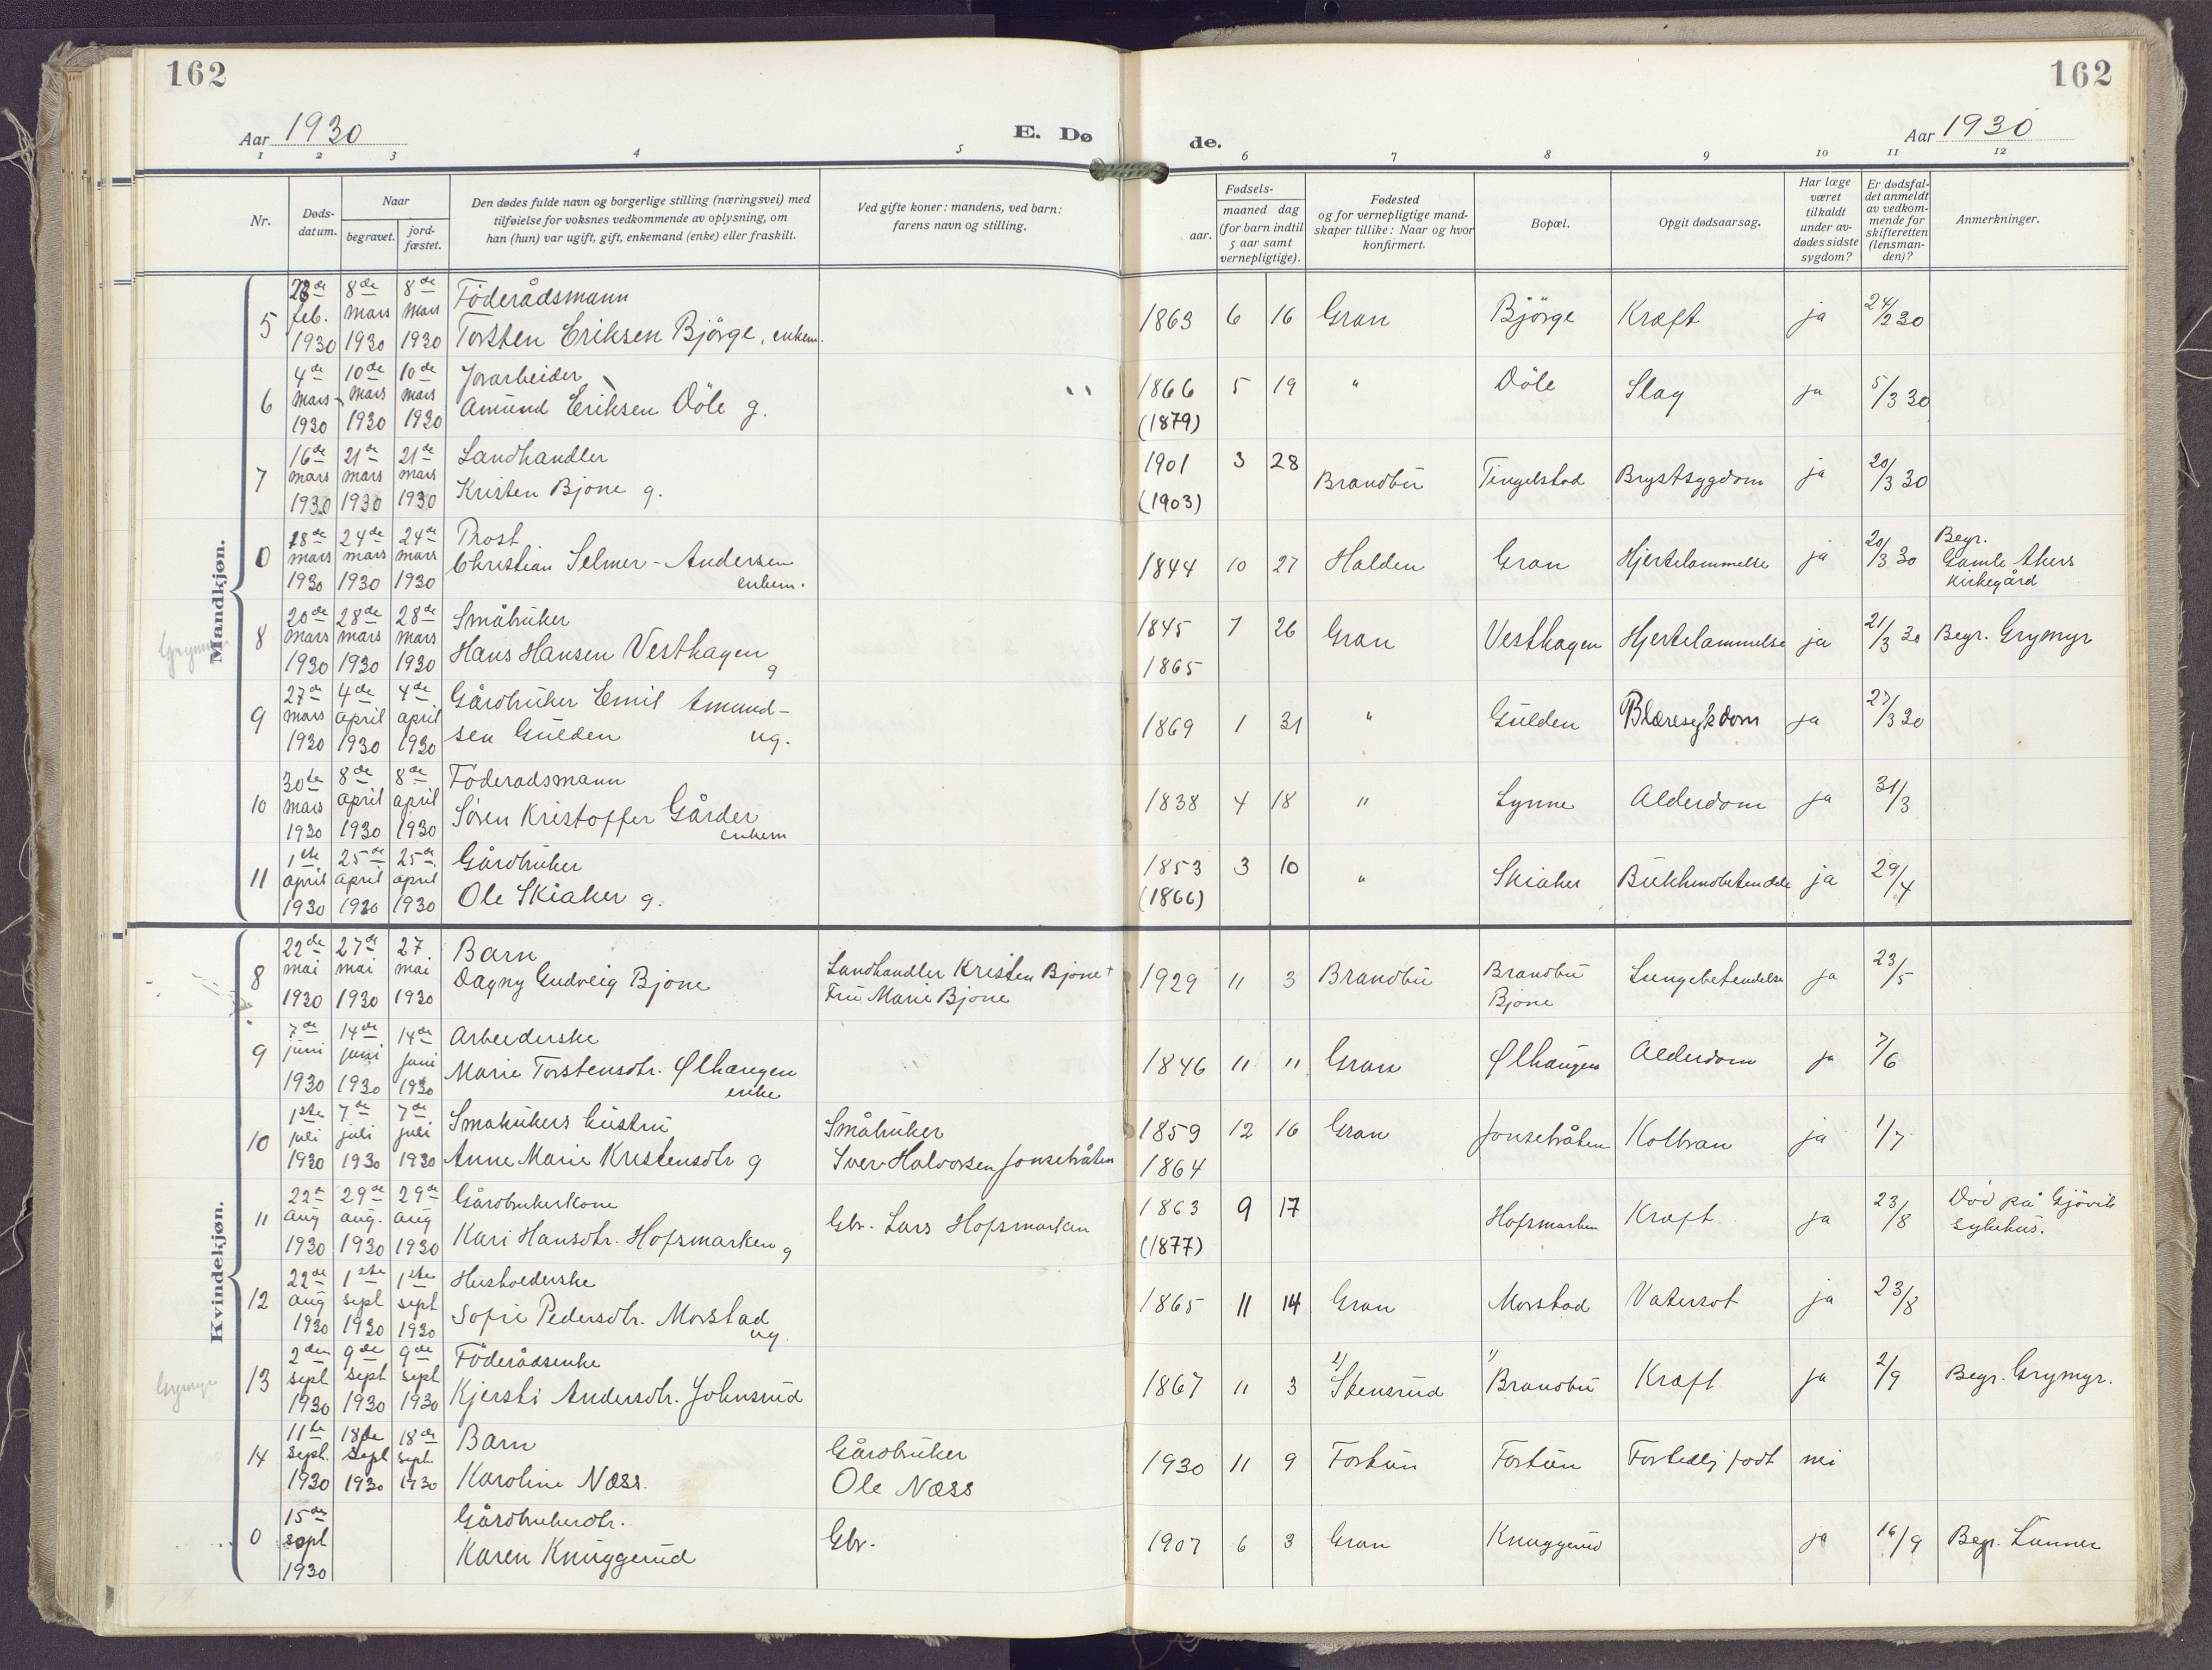 162
162
Aar 1930
E. Dø
de.
Aar 1930
1 2 3 4 5 6 7 8 9 10 11 12
Nr.
Døds-
datum.
Naar
begravet.
jord-
fæstet.
Den dødes fulde navn og borgerlige stilling (næringsvei) med
tilføielse for voksnes vedkommende av oplysning, om
han (hun) var ugift, gift, enkemand (enke) eller fraskilt.
Ved gifte koner: mandens, ved barn:
farens navn og stilling.
Fødsels-
aar.
maaned dag
(for barn indtil
5 aar samt
vernepligtige).
Fødested
og for vernepligtige mand-
skaper tillike: Naar og hvor
konfirmert.
Bopæl.
Opgit dødsaarsag.
Har læge
været
tilkaldt
under av-
dødes sidste
sygdom?
Er dødsfal-
det anmeldt
av vedkom-
mende for
skifteretten
(lensman-
den)?
Anmerkninger.
Mandkjøn.
5 de 8de 8de Föderådsmann
feb. mars mars
1930 1930 1930 Torsten Eriksen Bjørge, enkem. 1863 6 16 Gran Bjørge Kræft ja 24/2 30
6 4de 10de 10de
mars mars mars
1930 1930 1930 Amund Eriksen Döle g. 1866 5 19 " Döle Slag ja 5/3 30
(1879)
7 16de 21de 21de Landhandler
mars mars mars
1930 1930 1930 Kristen Bjone g. 1901 3 28 Brandbu Tingelstad Brystsygdom ja 20/3 30
(1903)
0 18de 24de 24de Prost
mars mars mars Christian Selmer-Andersen
1930 1930 1930 enkem. 1844 10 27 Halden Gran Hjertelammelse ja 20/3 30 Begr.
Gamle Akers
kirkegård
Grymyr
8 20de 28de 28de Småbruker
mars mars mars
1930 1930 1930 Hans Hansen Vesthagen g 1845 7 26 Gran Vesthagen Hjertelammelse ja 21/3 30 Begr. Grymyr
1865
9 27de 4de 4de Gårdbruker Emil Amund-
mars april april
1930 1930 1930 sen Gulden ug. 1869 1 31 " Gulden Blæresykdom ja 27/3 30
10 30te 8de 8de Föderadsmann
mars april april
1930 1930 1930 Søren Kristoffer Gårder enkem 1838 4 18 " Lynne Alderdom ja 31/3
11 1ste 25de 25de Gårdbruker
april april april
1930 1930 1930 Ole Skiaker g. 1853 3 10 " Skiaker Bukhindbetendelse ja 29/4
(1866)
Kvindekjøn.
8 22de 27de 27. Barn
mai mai mai
1930 1930 1930 Dagny Gudveig Bjone Landhandler Kristen Bjone †
Fru Marie Bjone 1929 11 3 Brandbu Brandbu
Bjone Lungebetendelse ja 23/5
9 7de 14de 14de Arbeiderske
juni juni juni
1930 1930 1930 Marie Torstensdtr. Ølhaugen
enke 1846 11 11 Gran Ølhaugen Alderdom ja 7/6
10 1ste 7de 7de Smabrukers hustru
juli juli juli
1930 1930 1930 Anne Marie Kristensdtr g Småbruker
Iver Halvorsen Jonsebråten 1859 12 16 Gran Jonsebråten Koldbran ja 1/7
1864
11 22d 29de 29de Gårdbrukerkone
aug aug. aug
1930 1930 1930 Kari Hansdtr. Hofsmarken g Gbr. Lars Hofsmarken 1863 9 17 Hofsmarken Kræft ja 23/8 Död på Gjövik
sykehus.
(1877)
12 22de 1ste 1ste Husholderske
aug sept sept
1930 1930 1930 Sofie Pedersdtr. Morstad
ug. 1865 11 14 Gran Morstad Vatersot ja 23/8
Grymyr
13 2den 9de 9de Föderådsenke
sept sept sept
1930 1930 1930 Kjersti Andersdtr. Johnsrud 1867 11 3 Stensrud Brandbu Kræft ja 2/9 Begr. Grymyr.
14 11te 18de 18de Barn
sept. sept sept.
1930 1930 1930 Karoline Næss. Gårdbruker
Ole Næss 1930 11 9 Fortun Fortun Fortidlig födt nei
0 15de Gårdbrukerdtr.
sept
1930 Karen Knuggerud Gbr. 1907 6 3 Gran Knuggerud ja 16/9 Begr. Lunner